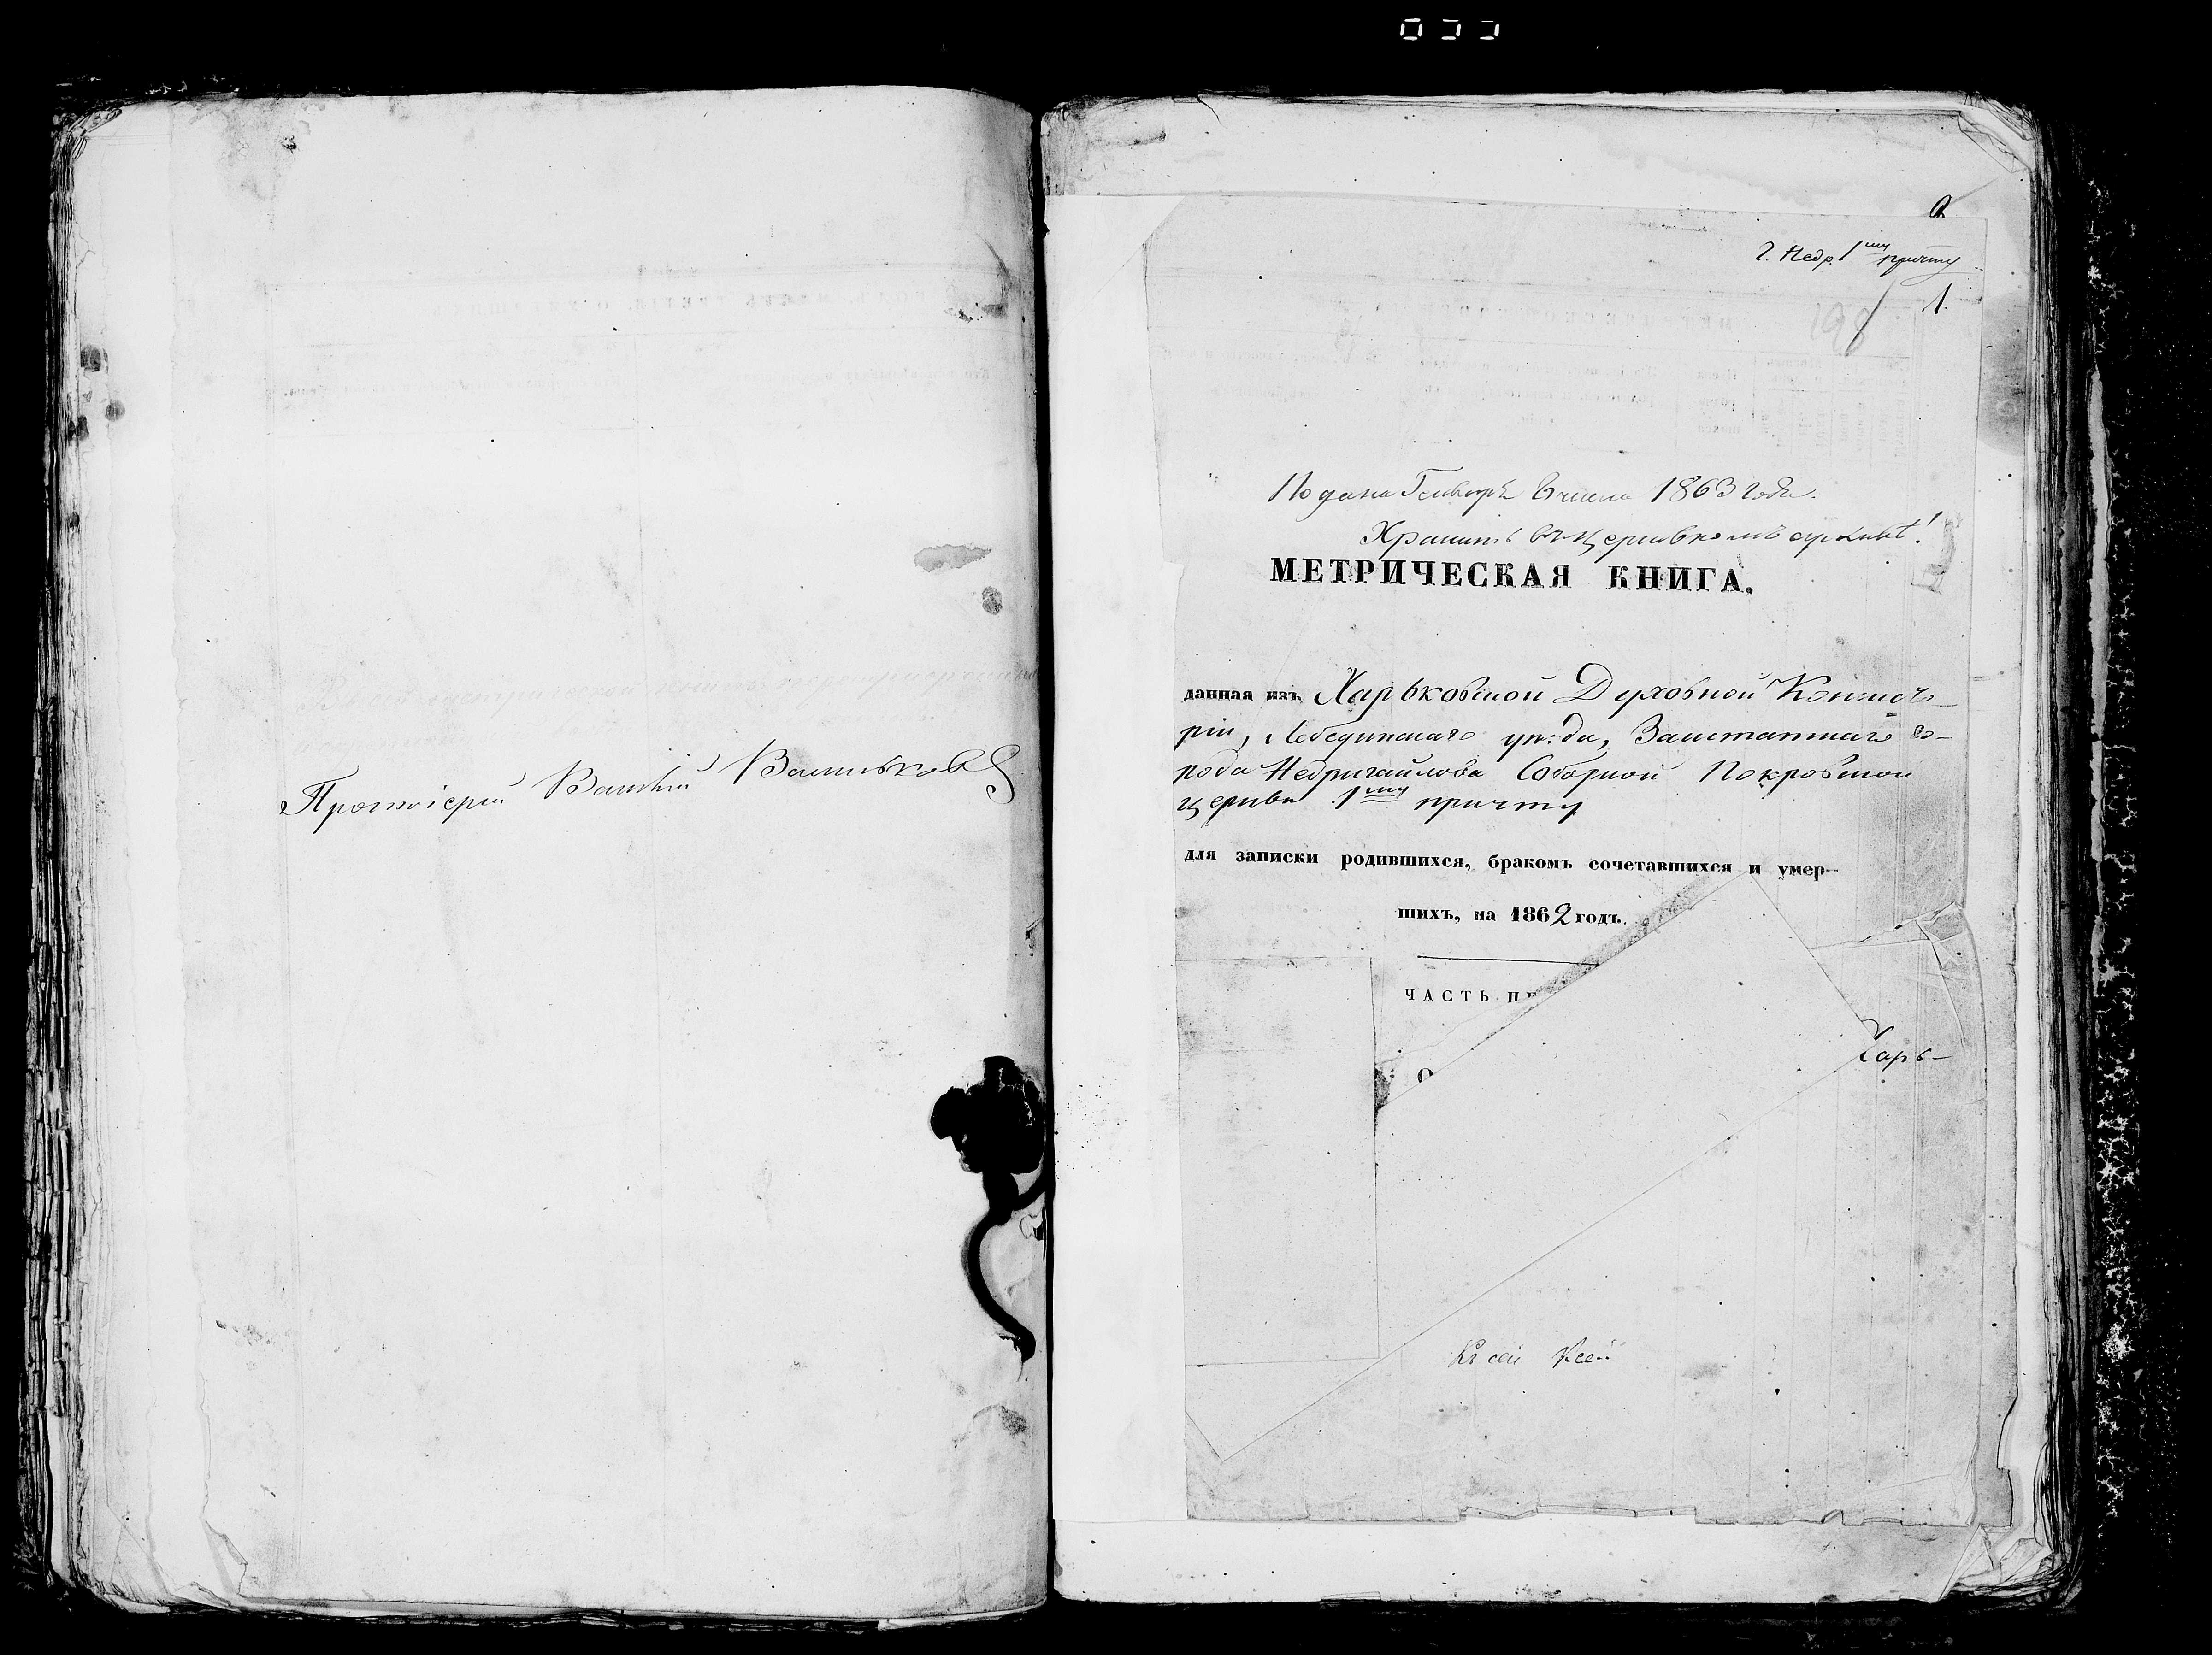 Протоіерей Василій Васильковъ
г. Недр. 1му причту
1.
198
Подана Генваря 6 числа 1863 года.
Хранить въ церковномъ архивѣ!
МЕТРИЧЕСКАЯ КНИГА.
данная изъ Харьковской Духовной Консисто-
ріи, Лебединскаго уѣзда, Заштатнаго го-
рода Недригайлова Соборной Покровской
церкви 1му причту
для записки родившихся, бракомъ сочетавшихся и умер-
шихъ, на 1862 годъ.
ЧАСТЬ ПЕ
О
Харь-
Къ сей